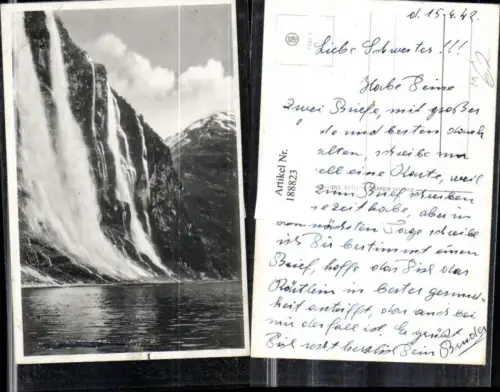 d. 15.4.42.
Liebe Schwester !!!
Habe Deine
zwei Briefe, mit großer
und besten Dank
alten, schreibe
eine Karte, weil
zum Brief schreiben
Zeit habe, aber in
nächsten Tage schreibe
ich Dir bestimmt einen
Brief, hoffe das Dich das
Kärtlein in bester gesund-
heit antrifft, das auch bei
mir der fall ist. Es grüßt
Dich recht herzlich Dein Bruder
Artikel Nr.
188823